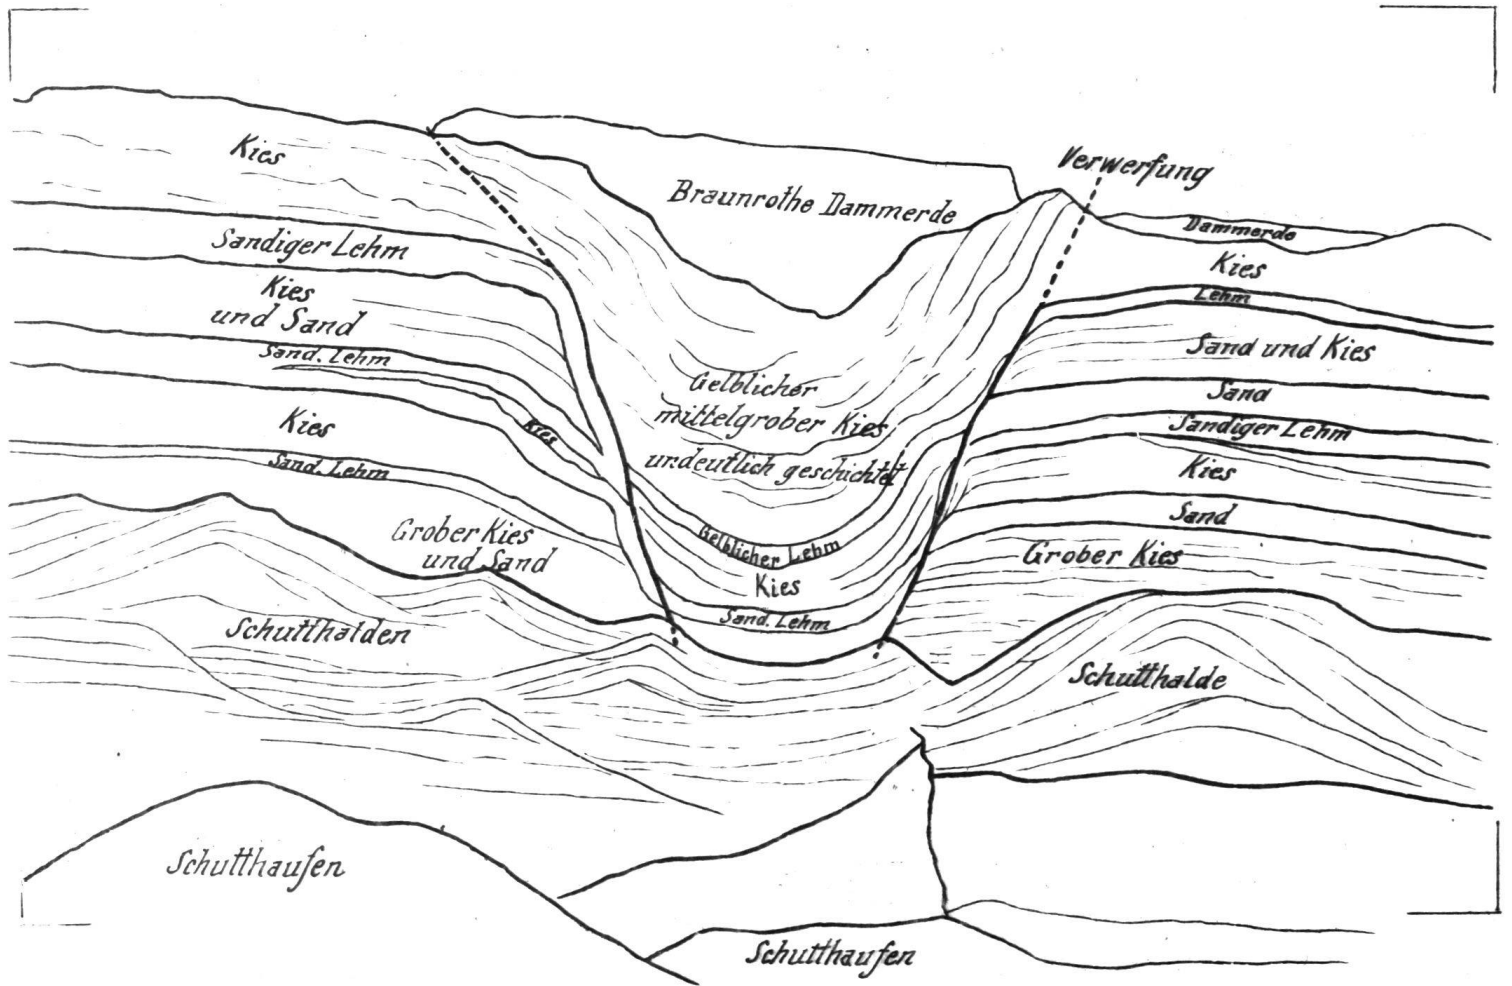 Kies
Sandiger Lehm
Kies
und Sand
Sand. Lehm
Kies
Kies
Sand. Lehm
Grober Kies
und Sand
Schutthalden
Schutthaufen
Braunrothe Dammerde
Gelblicher
mittelgrober Kies
undeutlich geschichtet
Gelblicher Lehm
Kies
Sand. Lehm
Schutthaufen
Verwerfung
Dammerde
Kies
Lehm
Sand und Kies
Sand
Sandiger Lehm
Kies
Sand
Grober Kies
Schutthalde